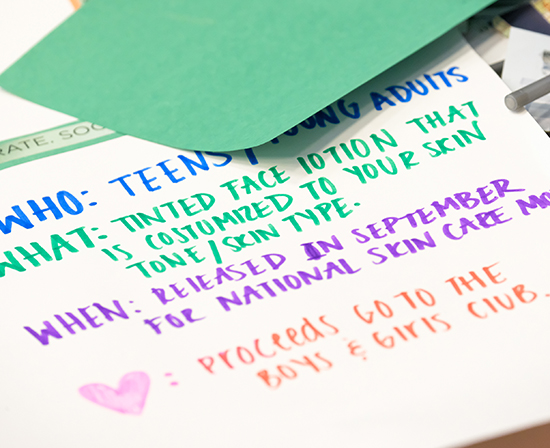 RATE. SOC
WHO: TEENS / YOUNG ADULTS
WHAT: TINTED FACE LOTION THAT
IS COSTUMIZED TO YOUR SKIN
TONE/SKIN TYPE.
WHEN: RELEASED IN SEPTEMBER
FOR NATIONAL SKIN CARE MO
: PROCEEDS GO TO THE
BOYS & GIRLS CLUB.